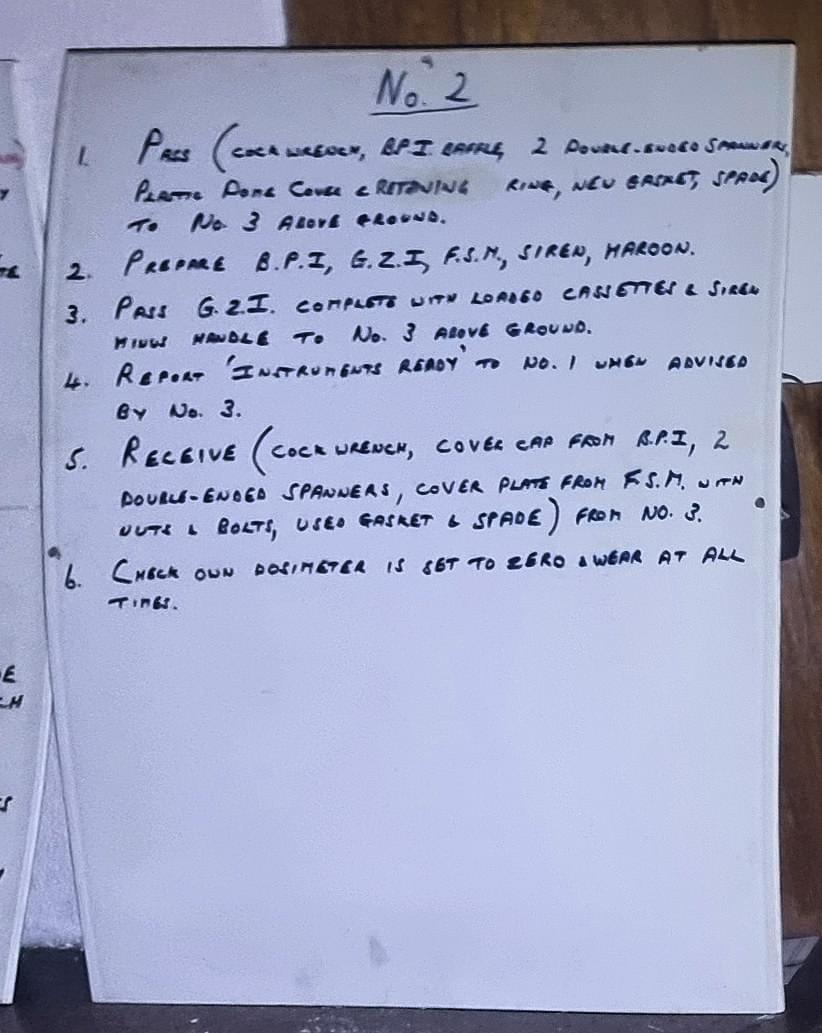 No. 2
1. PASS (COCK WRENCH, B.P.I. BAFFLE, 2 DOUBLE-ENDED SPANNERS,
PLASTIC DOME COVER & RETAINING RING, NEW GASKET, SPADE)
TO No. 3 ABOVE GROUND.
2. PREPARE B.P.I, G.Z.I, F.S.M., SIREN, MAROON.
3. PASS G.Z.I. COMPLETE WITH LOADED CASSETTES & SIREN
MINUS HANDLE TO No. 3 ABOVE GROUND.
4. REPORT 'INSTRUMENTS READY' TO NO. 1 WHEN ADVISED
BY No. 3.
5. RECEIVE (COCK WRENCH, COVER CAP FROM B.P.I, 2
DOUBLE-ENDED SPANNERS, COVER PLATE FROM F.S.M. WITH
NUTS & BOLTS, USED GASKET & SPADE) FROM NO. 3.
6. CHECK OWN DOSIMETER IS SET TO ZERO & WEAR AT ALL
TIMES.